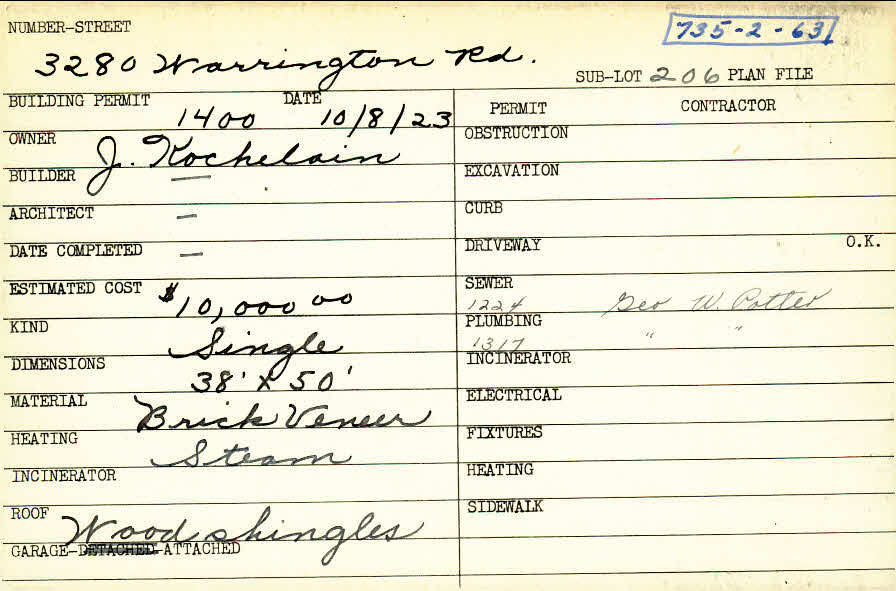 NUMBER-STREET
735-2-63
3280 Warrington Rd.
SUB-LOT 206 PLAN FILE
BUILDING PERMIT 1400 DATE 10/8/23
OWNER J. Kochelain
BUILDER —
ARCHITECT —
DATE COMPLETED —
ESTIMATED COST $10,000 00
KIND Single
DIMENSIONS 38' x 50'
MATERIAL Brick Veneer
HEATING Steam
INCINERATOR
ROOF Wood shingles
GARAGE-DETACHED-ATTACHED
PERMIT CONTRACTOR
OBSTRUCTION
EXCAVATION
CURB
DRIVEWAY O.K.
SEWER
1224 Geo W. Potter
PLUMBING
1317 " "
INCINERATOR
ELECTRICAL
FIXTURES
HEATING
SIDEWALK